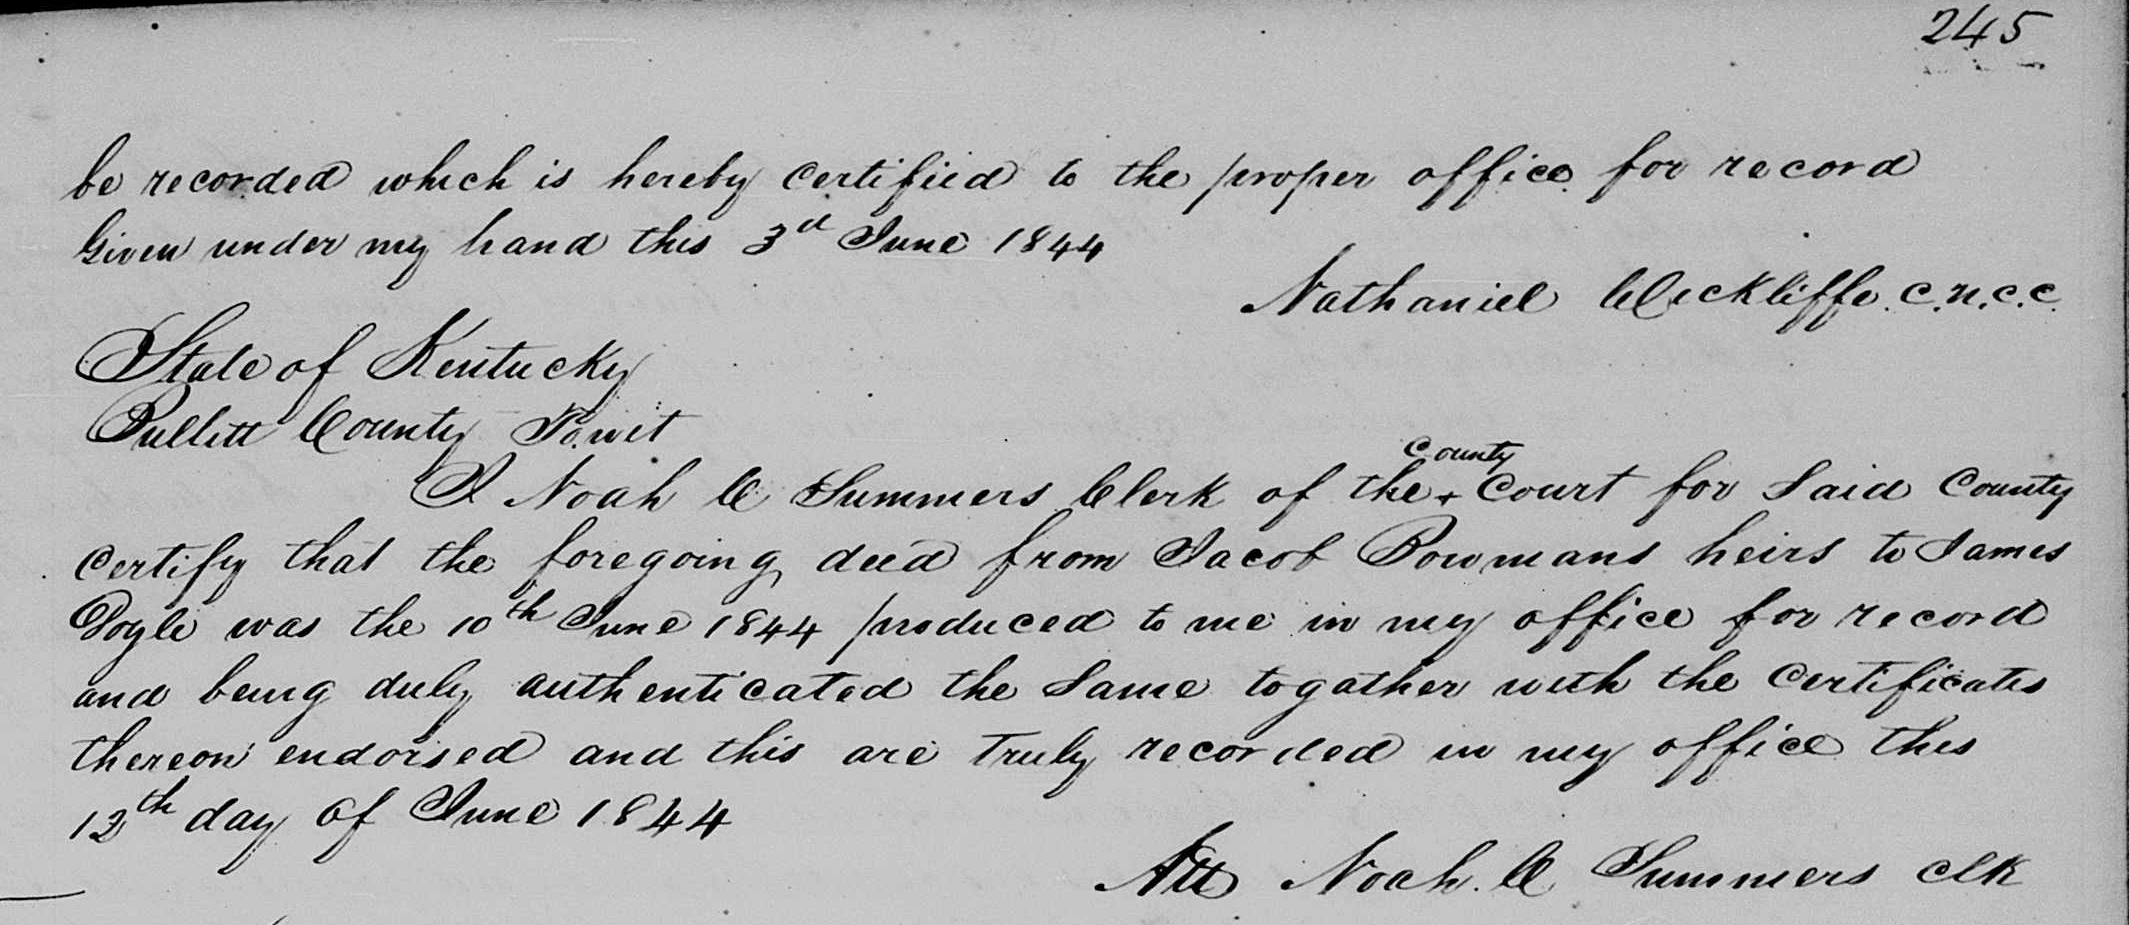 245
be recorded which is hereby certified to the proper office for record
Given under my hand this 3d June 1844
Nathaniel Wickliffe. C.N.C.C.
State of Kentucky
Bullitt County Towit
I Noah C Summers Clerk of the + Court for Said County
County
certify that the foregoing deed from Jacob Bowmans heirs to James
Pogle was the 10th June 1844 produced to me in my office for record
and being duly authenticated the Same togather with the certificates
thereon endorsed and this are truly recorded in my office this
12th day of June 1844
Att Noah. C Summers clk